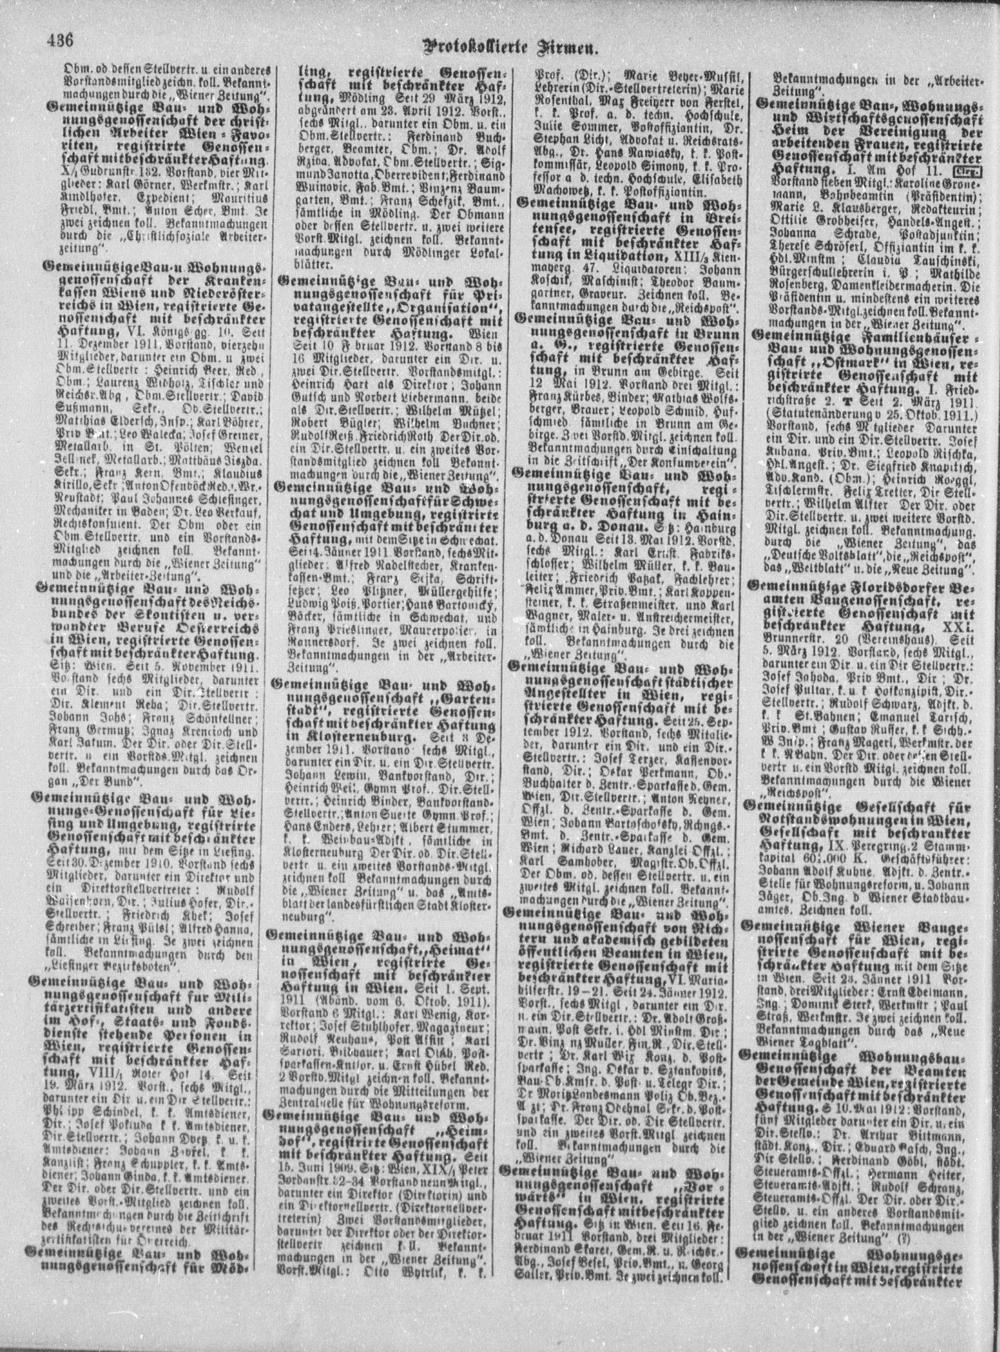 436
Protokollierte Firmen.
Obm. od dessen Stellvertr. u ein anderes
Vorstandsmitglied zeichn. koll. Bekannt-
machungen durch die „Wiener Zeitung".
Gemeinnützige Bau- und Woh-
nungsgenossenschaft der christ-
lichen Arbeiter Wien-Favo-
riten, registrirte Genossen-
schaft mit beschränkter Haftung.
X/1 Gudrunstr. 132. Vorstand, vier Mit-
glieder: Karl Görner, Werkmstr.; Karl
Kindlhofer, Expedient; Mauritius
Friedl, Bmt.; Anton Scher, Bmt. Je
zwei zeichnen koll. Bekanntmachungen
durch die „Christlichsoziale Arbeiter-
zeitung".
Gemeinnützige Bau- u Wohnungs-
genossenschaft der Kranken-
kassen Wiens und Niederöster-
reichs in Wien, registrirte Ge-
nossenschaft mit beschränkter
Haftung, VI. Königsgg. 10. Seit
11. Dezember 1911. Vorstand, vierzehn
Mitglieder, darunter ein Obm. u zwei
Obm. Stellvertr.: Heinrich Beer, Red.,
Obm.; Laurenz Widholz, Tischler und
Reichsr. Abg., Obm. Stellvertr.; David
Sußmann, Sekr., Ob. Stellvertr.;
Matthias Eldersch, Insp.; Karl Böhrer,
Priv B mt.; Leo Walecka; Josef Greiner,
Metallarb. in St. Pölten; Wenzel
Jellinek, Metallarb.; Matthäus Jiszda,
Sekr.; Franz Kern, Bmt.; Klaudius
Kirillo, Sekr; Anton Ofenböck Red., Wr.
Neustadt; Paul Johannes Schlesinger,
Mechaniker in Baden; Dr. Leo Verkauf,
Rechtskonsulent. Der Obm oder ein
Obm. Stellvertr. und ein Vorstands-
Mitglied zeichnen koll. Bekannt-
machungen durch die „Wiener Zeitung"
und die „Arbeiter-Zeitung".
Gemeinnützige Bau- und Woh-
nungsgenossenschaft des Reichs-
bundes der Skontisten u. ver-
wandter Berufe Oesterreichs
in Wien, registrirte Genossen-
schaft mit beschränkter Haftung.
Sitz: Wien. Seit 5. November 1911.
Vorstand sechs Mitglieder, darunter
ein Dir. und ein Dir. Stellvertr.:
Dir. Klement Reba; Dir. Stellvertr.
Johann Johs; Franz Schönfellner;
Franz Germuth; Ignaz Krencioch und
Karl Jakum. Der Dir. oder Dir. Stell-
vertr. u ein Vorstds. Mitgl. zeichnen
koll. Bekanntmachungen durch das Or-
gan „Der Bund".
Gemeinnützige Bau- und Woh-
nungs-Genossenschaft für Lie-
sing und Umgebung, registrirte
Genossenschaft mit beschränkter
Haftung, mit dem Sitze in Liesing.
Seit 30. Dezember 1910. Vorstand sechs
Mitglieder, darunter ein Direktor und
ein Direktorstellvertreter: Rudolf
Waisenhorn, Dir.; Julius Hofer, Dir.-
Stellvertr.; Friedrich Khek; Josef
Schreiber; Franz Pülsl; Alfred Hanna,
sämtliche in Liesing. Je zwei zeichnen
koll. Bekanntmachungen durch den
„Liesinger Bezirksboten".
Gemeinnützige Bau- und Woh-
nungsgenossenschaft für Mili-
tärzertifikatisten und andere
im Hof-, Staats- und Fonds-
dienste stehende Personen in
Wien, registrirte Genossen-
schaft mit beschränkter Haf-
tung, VIII/1 Roter Hof 14. Seit
19. März 1912. Vorst., sechs Mitgl.,
darunter ein Dir u. ein Dir Stellvertr.:
Philipp Schindel, k. k. Amtsdiener,
Dir.; Josef Pokuda k k. Amtsdiener,
Dir. Stellvertr.; Johann Dvetz k. u. k.
Amtsdiener: Johann Zoufel, k. k.
Kanzlist; Franz Schuppler, k. k. Amts-
diener; Johann Ginda, k. k. Amtsdiener.
Der Dir. oder Dir. Stellvertr. und ein
zweites Vorst.-Mitglied zeichnen koll.
Bekanntmachungen durch die Zeitschrift
des Rechtsschutzvereines der Militär-
zertifikatisten für Österreich.
Gemeinnützige Bau- und Woh-
nungsgenossenschaft für Möd-
ling, registrierte Genossen-
schaft mit beschränkter Haf-
tung, Mödling Seit 29 März 1912,
abgeändert am 23. April 1912. Vorst.,
sechs Mitgl., darunter ein Obm. u. ein
Obm. Stellvertr.: Ferdinand Buch-
berger, Beamter, Obm.; Dr. Adolf
Rziva, Advokat, Obm. Stellvertr.; Sig-
mund Janotta, Oberrevident; Ferdinand
Wuinovic, Fab. Bmt.; Vinzenz Baum-
garten, Bmt.; Franz Schefzik, Bmt.,
sämtliche in Mödling. Der Obmann
oder dessen Stellvertr. u. zwei weitere
Vorst. Mitgl. zeichnen koll. Bekannt-
machungen durch Mödlinger Lokal-
blätter.
Gemeinnützige Bau- und Woh-
nungsgenossenschaft für Pri-
vatangestellte „Organisation",
registrirte Genossenschaft mit
beschränkter Haftung. Wien
Seit 10 Februar 1912. Vorstand 8 bis
16 Mitglieder, darunter ein Dir. u.
zwei Dir. Stellvertr. Vorstandsmitgl.:
Heinrich Hart als Direktor; Johann
Gutsch und Norbert Liebermann, beide
als Dir. Stellvertr.; Wilhelm Mützel;
Robert Bügler; Wilhelm Buchner;
Rudolf Reiß, Friedrich Roth. Der Dir. od.
ein Dir. Stellvertr. u. ein zweites Vor-
standsmitglied zeichnen koll Bekannt-
machungen durch die „Wiener Zeitung".
Gemeinnützige Bau- und Woh-
nungsgenossenschaft für Schwe-
chat und Umgebung, registrirte
Genossenschaft mit beschränkter
Haftung, mit dem Sitze in Schwechat.
Seit 4. Jänner 1911 Vorstand, sechs Mit-
glieder: Alfred Nadelstecher, Kranken-
kassen-Bmt.; Franz Sejka, Schrift-
setzer; Leo Plitzner, Müllergehilfe;
Ludwig Poitz, Portier; Hans Bartonicky,
Bäcker, sämtliche in Schwechat, und
Franz Prieslinger, Maurerpolier, in
Rannersdorf. Je zwei zeichnen koll.
Bekanntmachungen in der „Arbeiter-
Zeitung".
Gemeinnützige Bau- und Woh-
nungsgenossenschaft „Garten-
stadt", registrirte Genossen-
schaft mit beschränkter Haftung
in Klosterneuburg. Seit 3 De-
zember 1911. Vorstand sechs Mitgl.,
darunter ein Dir. u. ein Dir. Stellvertr.
Johann Lewin, Bankvorstand, Dir.;
Heinrich Weil, Gymn Prof., Dir. Stell-
vertr.; Heinrich Binder, Bankvorstand-
Stellvertr.; Anton Suette Gymn. Prof.;
Hans Enders, Lehrer; Albert Stummer,
k. k. Weinbau-Adjkt, sämtliche in
Klosterneuburg Der Dir. od. Dir. Stell-
vertr. u ein zweites Vorstands-Mitgl.
zeichnen koll Bekanntmachungen durch
die „Wiener Zeitung" u. das „Amts-
blatt der landesfürstlichen Stadt Kloster-
neuburg".
Gemeinnützige Bau- und Woh-
nungsgenossenschaft „Heimat"
in Wien, registrirte Ge-
nossenschaft mit beschränkter
Haftung in Wien. Seit 1. Sept.
1911 (Abänd. vom 6. Oktob. 1911).
Vorstand 6 Mitgl.: Karl Wenig, Kor-
rektor; Josef Stuhlhofer, Magazineur;
Rudolf Neuhaus, Post Assist; Karl
Sartori, Bildhauer; Karl Olah, Post-
sparkassen-Kntlor u. Ernst Hübel Red.
2 Vorstd. Mitgl zeichnen koll. Bekannt-
machungen durch die Mitteilungen der
Zentralstelle für Wohnungsreform.
Gemeinnützige Bau- und Woh-
nungsgenossenschaft „Heim-
hof", registrirte Genossenschaft
mit beschränkter Haftung. Seit
15. Juni 1909. Sitz: Wien, XIX/1 Peter
Jordanstr. 32-34 Vorstand neun Mitgl.,
darunter ein Direktor (Direktorin) und
ein Direktorstellvertr. (Direktorstellver-
treterin) Zwei Vorstandsmitglieder,
darunter der Direktor oder die Direktor-
stellvertr. zeichnen koll. Bekannt-
machungen in der „Wiener Zeitung".
Vorst. Mitgl.: Otto Wytrlik, k. k.
Prof. (Dir.); Marie Beyer-Mussil,
Lehrerin (Dir.-Stellvertreterin); Marie
Rosenthal, Max Freiherr von Ferstel,
k. k. Prof. a. d. techn. Hochschule,
Julie Sommer, Postoffiziantin, Dr.
Stephan Licht, Advokat u. Reichsrats-
Abg., Dr. Hans Rawiasky, k. k. Post-
kommissär, Leopold Simony, k. k. Pro-
fessor a d. techn. Hochschule, Elisabeth
Machowetz, k. k. Postoffizientin.
Gemeinnützige Bau- und Woh-
nungsgenossenschaft in Brei-
tensee, registrirte Genossen-
schaft mit beschränkter Haf-
tung in Liquidation, XIII/3 Kien-
mayerg. 47. Liquidatoren: Johann
Koschik, Maschinist; Theodor Baum-
gartner, Graveur. Zeichnen koll. Be-
kanntmachungen durch die „Reichspost".
Gemeinnützige Bau- und Woh-
nungsgenossenschaft in Brunn
a. G., registrirte Genossen-
schaft mit beschränkter Haf-
tung, in Brunn am Gebirge. Seit
12 Mai 1912. Vorstand drei Mitgl.:
Franz Kürbes, Binder; Mathias Wolfs-
berger, Brauer; Leopold Schmid, Huf-
schmied, sämtliche in Brunn am Ge-
birge. Zwei Vorstd. Mitgl. zeichnen koll.
Bekanntmachungen durch Einschaltung
in die Zeitschrift „Der Konsumverein".
Gemeinnützige Bau- und Woh-
nungsgenossenschaft, regi-
strierte Genossenschaft mit be-
schränkter Haftung in Hain-
burg a. d. Donau. Sitz: Hainburg
a. d. Donau Seit 13. Mai 1912. Vorstd.
sechs Mitgl.: Karl Ernst, Fabriks-
schlosser; Wilhelm Müller, k. k. Bau-
leiter; Friedrich Patzak, Fachlehrer;
Felix Ammer, Priv. Bmt.; Karl Koppen-
steiner, k. k. Straßenmeister, und Karl
Wagner, Maler- u. Anstreichermeister,
sämtliche in Hainburg. Je drei zeichnen
koll. Bekanntmachungen durch die
„Wiener Zeitung".
Gemeinnützige Bau- und Woh-
nungsgenossenschaft städtischer
Angestellter in Wien, regi-
strirte Genossenschaft mit be-
schränkter Haftung. Seit 25. Sep-
tember 1912. Vorstand, sechs Mitglie-
der, darunter ein Dir. und ein Dir.-
Stellvertr.: Josef Terzer, Kassenvor-
stand, Dir.; Oskar Perkmann, Ob.-
Buchhalter d. Zentr.-Sparkasse d. Gem.
Wien, Dir. Stellvertr.; Anton Neyner,
Offzl. d. Zentr.-Sparkasse d. Gem.
Wien; Johann Bartoschofsky, Rchngs.-
Bmt. d. Zentr.-Sparkasse d. Gem.
Wien; Richard Lauer, Kanzlei Offzl.;
Karl Samhober, Magistr. Ob. Offzl.
Der Obm. od. dessen Stellvertr. u. ein
zweites Mitgl. zeichnen koll. Bekannt-
machungen durch die „Wiener Zeitung".
Gemeinnützige Bau- und Woh-
nungsgenossenschaft von Rich-
tern und akademisch gebildeten
öffentlichen Beamten in Wien,
registrirte Genossenschaft mit
beschränkter Haftung, VI. Maria-
hilferstr. 19-21. Seit 24. Jänner 1912.
Vorst., sechs Mitgl., darunter ein Dir.
u ein Dir. Stellvertr.: Dr. Adolf Groß-
mann, Post Sekr. i. Hdl Minstm. Dir;
Dr. Vinzenz Müller, Fin. R., Dir. Stell-
vertr.; Dr. Karl Witz Konz. d. Post-
sparkasse; Ing. Oskar v. Sztankovits,
Bau-Ob. Kmsr. d. Post- u. Telegr Dir.;
Dr Moritz Landesmann Poliz Ob. Bez.-
Arzt; Dr. Franz Odehnal Sekr. d. Post-
sparkasse. Der Dir. od. Dir. Stellvertr.
und ein zweites Vorst. Mitgl zeichnen
koll. Bekanntmachungen durch die
„Wiener Zeitung".
Gemeinnützige Bau- und Woh-
nungsgenossenschaft „Vor-
wärts" in Wien, registrirte
Genossenschaft mit beschränkter
Haftung. Sitz in Wien. Seit 16. Fe-
bruar 1911 Vorstand, drei Mitglieder:
Ferdinand Skaret, Gem. R. u. Reichsr.-
Abg., Josef Besel, Priv. Bmt., u. Georg
Sailer, Priv. Bmt. Je zwei zeichnen koll.
Bekanntmachungen in der „Arbeiter-
Zeitung".
Gemeinnützige Bau-, Wohnungs-
und Wirtschaftsgenossenschaft
Heim der Vereinigung der
arbeitenden Frauen, registrirte
Genossenschaft mit beschränkter
Haftung. I. Am Hof 11.
Vorstand sieben Mitgl.: Karoline Grone-
mann, Bahnbeamtin (Präsidentin);
Marie L. Klausberger, Redakteurin;
Ottilie Grobheiser, Handels-Angest.;
Johanna Schrade, Postadjunktin;
Therese Schröferl, Offiziantin im k. k.
Hdl. Minstm; Claudia Tauschinski,
Bürgerschullehrerin i. P; Mathilde
Rosenberg, Damenkleidermacherin. Die
Präsidentin u. mindestens ein weiteres
Vorstands-Mitgl. zeichnen koll. Bekannt-
machungen in der „Wiener Zeitung".
Gemeinnützige Familienhäuser-
Bau- und Wohnungsgenossen-
schaft „Ostmark" in Wien, re-
gistrirte Genossenschaft mit
beschränkter Haftung, I. Fried-
richstraße 2. T Seit 2. März 1911.
(Statutenänderung v 25. Oktob. 1911.)
Vorstand, sechs Mitglieder Darunter
ein Dir. und ein Dir. Stellvertr. Josef
Kubana, Priv. Bmt.; Leopold Rischka,
Hdl. Angest.; Dr. Siegfried Knapitsch,
Adv. Kand. (Obm.); Heinrich Roeggl,
Tischlermstr. Felix Tretter, Dir Stell-
vertr.; Wilhelm Alster Der Dir. oder
Dir. Stellvertr. u. zwei weitere Vorstd.
Mitgl. zeichnen koll. Bekanntmachung.
durch die „Wiener Zeitung", das
„Deutsche Volksblatt", die „Reichspost",
das „Weltblatt" u. die „Neue Zeitung".
Gemeinnützige Floridsdorfer Be-
amten Baugenossenschaft, re-
gistrierte Genossenschaft mit
beschränkter Haftung, XXI.
Brunnerstr. 20 (Vereinshaus). Seit
5. März 1912. Vorstand, sechs Mitgl.,
darunter ein Dir. u. ein Dir Stellvertr.:
Josef Jahoda, Priv Bmt., Dir; Dr.
Josef Pultar, k. u. k Hofkonzipist, Dir.-
Stellvertr.; Rudolf Schwarz, Adjkt. d.
k. k St. Bahnen; Emanuel Tarisch,
Priv. Bmt; Gustav Russer, k. k Sichh.-
W Insp.; Franz Magerl, Werkmstr. der
k. k N Bahn. Der Dir. oder dessen Stell-
vertr. u. ein Vorstd Mitgl. zeichnen koll.
Bekanntmachungen durch die Wiener
„Reichspost".
Gemeinnützige Gesellschaft für
Notstandswohnungen in Wien,
Gesellschaft mit beschränkter
Haftung, IX. Peregring. 2 Stamm-
kapital 60.000 K. Geschäftsführer:
Johann Adolf Kuhne, Adjkt. d. Zentr.-
Stelle für Wohnungsreform, u. Johann
Jäger, Ob. Ing. d Wiener Stadtbau-
amtes. Zeichnen koll.
Gemeinnützige Wiener Bauge-
nossenschaft für Wien, regi-
strirte Genossenschaft mit be-
schränkter Haftung mit dem Sitze
in Wien. Seit 23. Jänner 1911 Vor-
stand, drei Mitglieder: Ernst Edelmann,
Ing.; Dominik Sterk, Werkmstr; Paul
Straß, Werkmstr. Je zwei zeichnen koll.
Bekanntmachungen durch das „Neue
Wiener Tagblatt".
Gemeinnützige Wohnungsbau-
Genossenschaft der Beamten
der Gemeinde Wien, registrierte
Genossenschaft mit beschränkter
Haftung. S 10. Mai 1912: Vorstand,
fünf Mitglieder darunter ein Dir. u. ein
Dir. Stello.: Dr. Arthur Pittmann,
städt. Konz., Dir.; Eduard Rasch, Ing.,
Dir Stello.; Ferdinand Göbl, städt.
Steueramts-Offzl.; Hermann Heiter,
Steueramts-Adjkt.; Rudolf Schranz,
Steueramts-Offzl. Der Dir. oder Dir.-
Stello. u. ein anderes Vorstandsmit-
glied zeichnen koll. Bekanntmachungen
in der „Wiener Zeitung". (?)
Gemeinnützige Wohnungsge-
nossenschaft in Wien, registrirte
Genossenschaft mit beschränkter